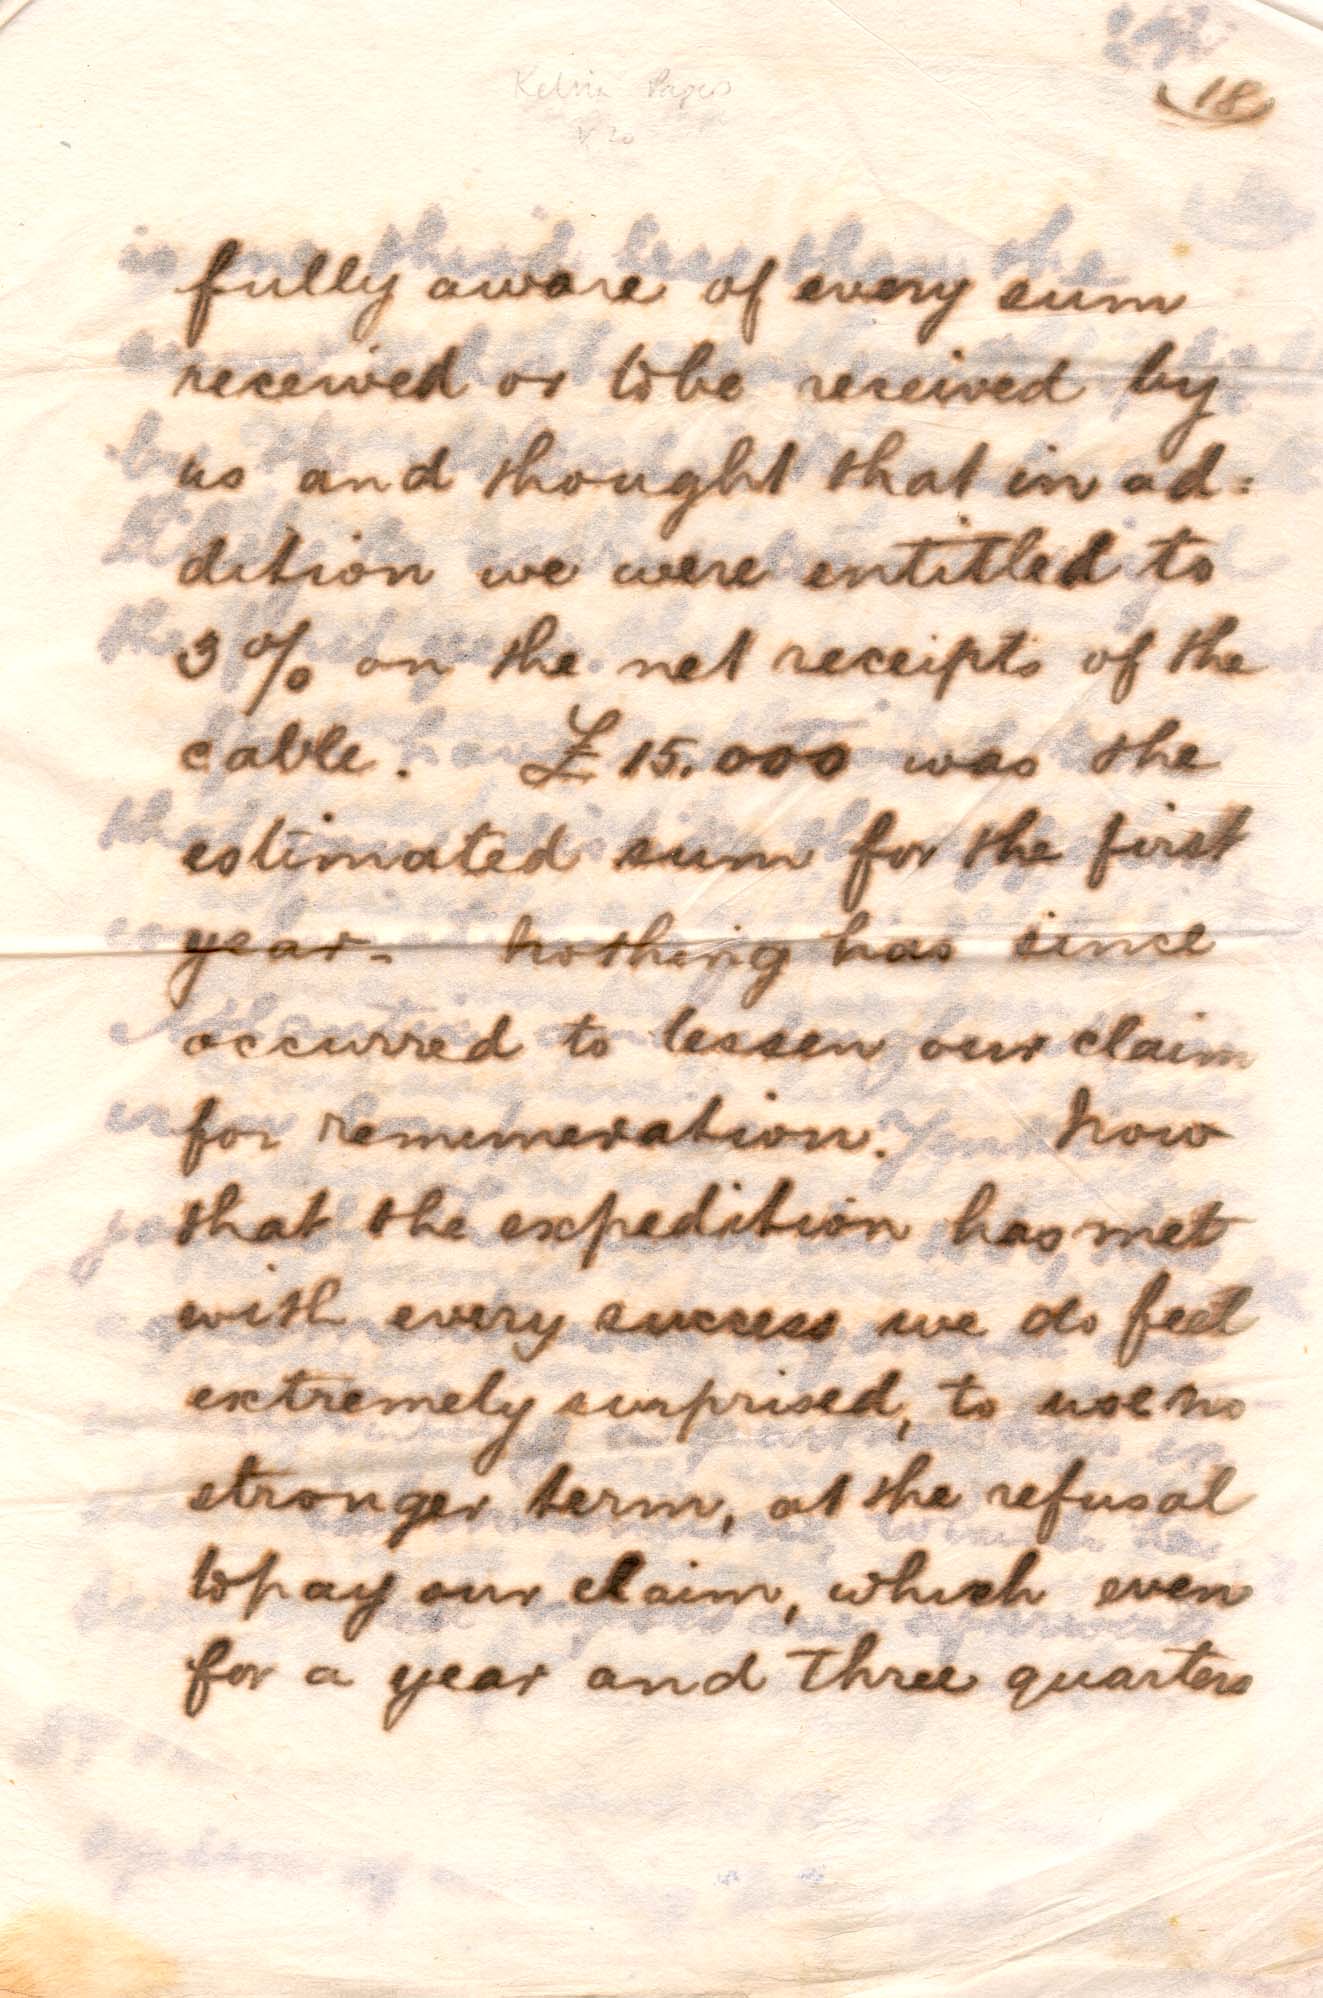 Kelvin Papers
18
fully aware of every sum
received or to be received by
us and thought that in ad=
dition we were entitled to
3% on the net receipts of the
cable. £15,000 was the
estimated sum for the first
year. Nothing has since
occurred to lessen our claim
for remuneration. Now
that the expedition has met
with every success we do feel
extremely surprised, to use no
stronger term, at the refusal
to pay our claim, which even
for a year and three quarters